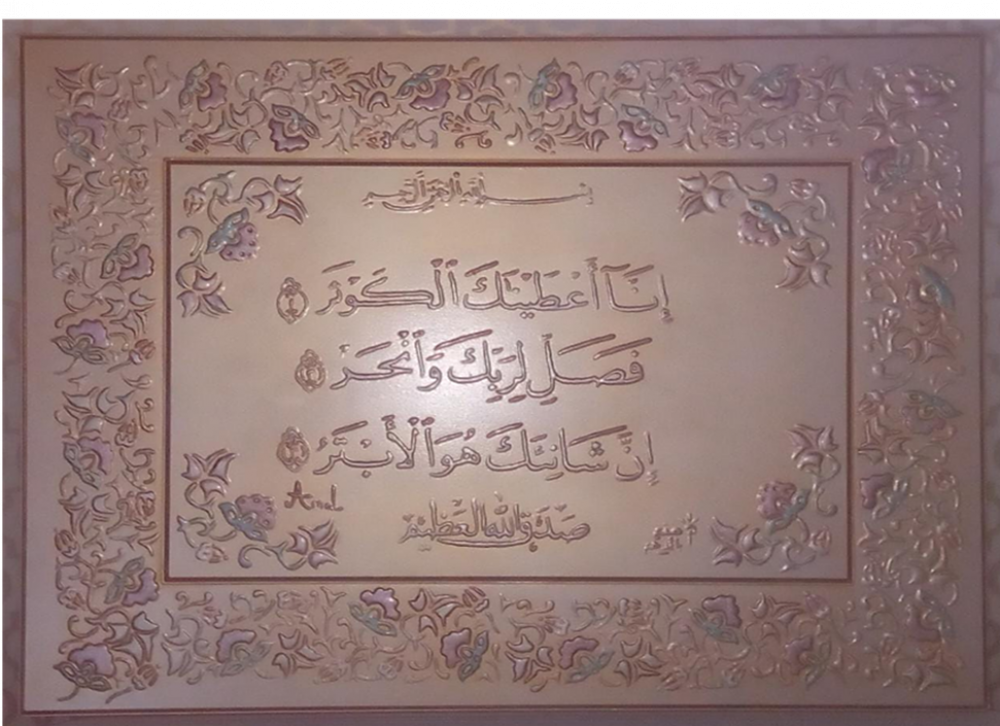 بسم الله الرحمن الرحيم
إِنَّآ أَعْطَيْنَٰكَ ٱلْكَوْثَرَ ١
فَصَلِّ لِرَبِّكَ وَٱنْحَرْ ٢
إِنَّ شَانِئَكَ هُوَ ٱلْأَبْتَرُ ٣
Amal
صدق الله العظيم